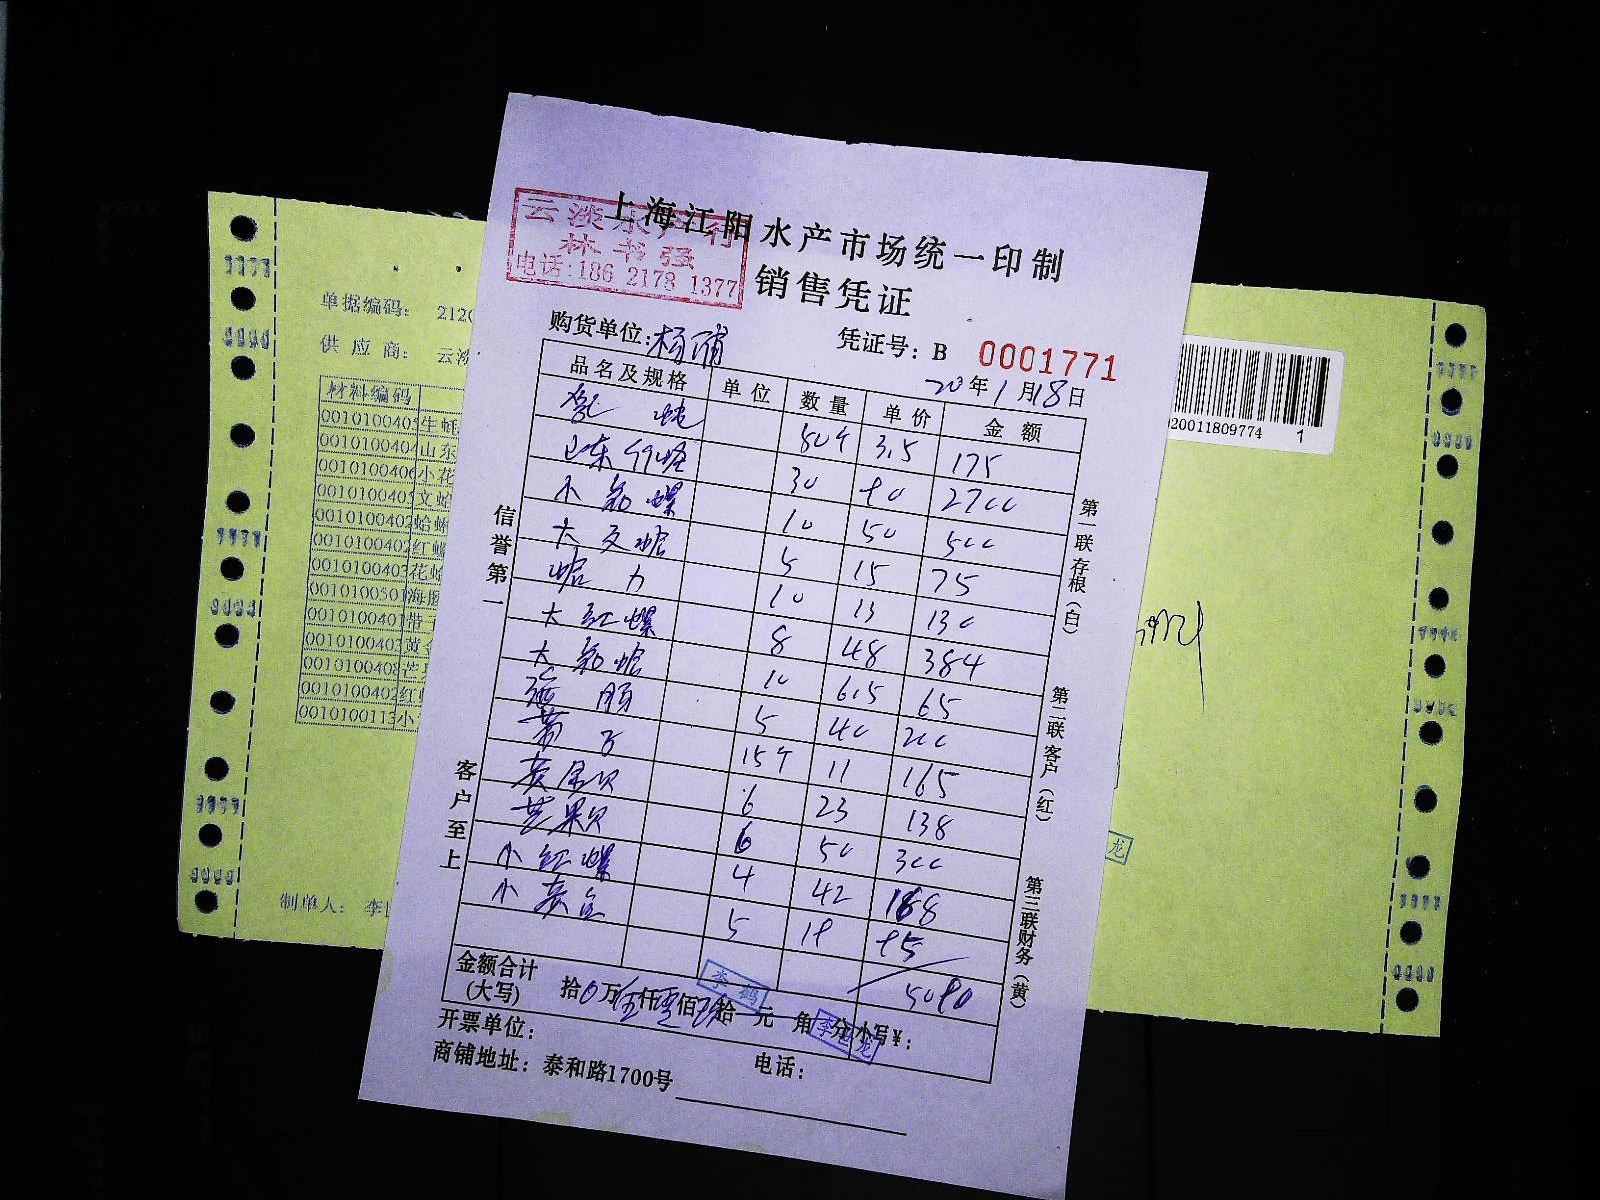 上海江阳水产市场统一印制
云淡水产行
林书强
电话:186 2178 1377
销售凭证
购货单位:杨浦
凭证号: B 0001771
20年1月18日
品名及规格 单位 数量 单价 金额
50个 3.5 175
山东 30 90 2700
小花螺 10 50 500
大文蛤 5 15 75
10 13 130
大红螺 8 48 384
大花蛤 10 6.5 65
海肠 5 40 200
带子 15个 11 165
黄金贝 6 23 138
芒果贝 6 50 300
小红螺 4 42 168
小黄金 5 19 95
5090
金额合计
(大写) 拾0万伍仟壹佰 拾 元 角 分 小写¥:
李鹤
开票单位:
商铺地址: 泰和路1700号
电话:
信誉第一
客户至上
第一联存根(白)
第二联客户(红)
第三联财务(黄)
单据编码: 212
供应商: 云淡
材料编码
001010040 生蚝
001010040 山东
0010100406 小花
001010040 文蛤
001010040 蛤蜊
001010040 红螺
001010040 花蛤
001010050 海肠
001010040 带子
001010040 黄金
001010040 芒果
001010040 红
001010011 小
制单人: 李
20011809774 1
龙